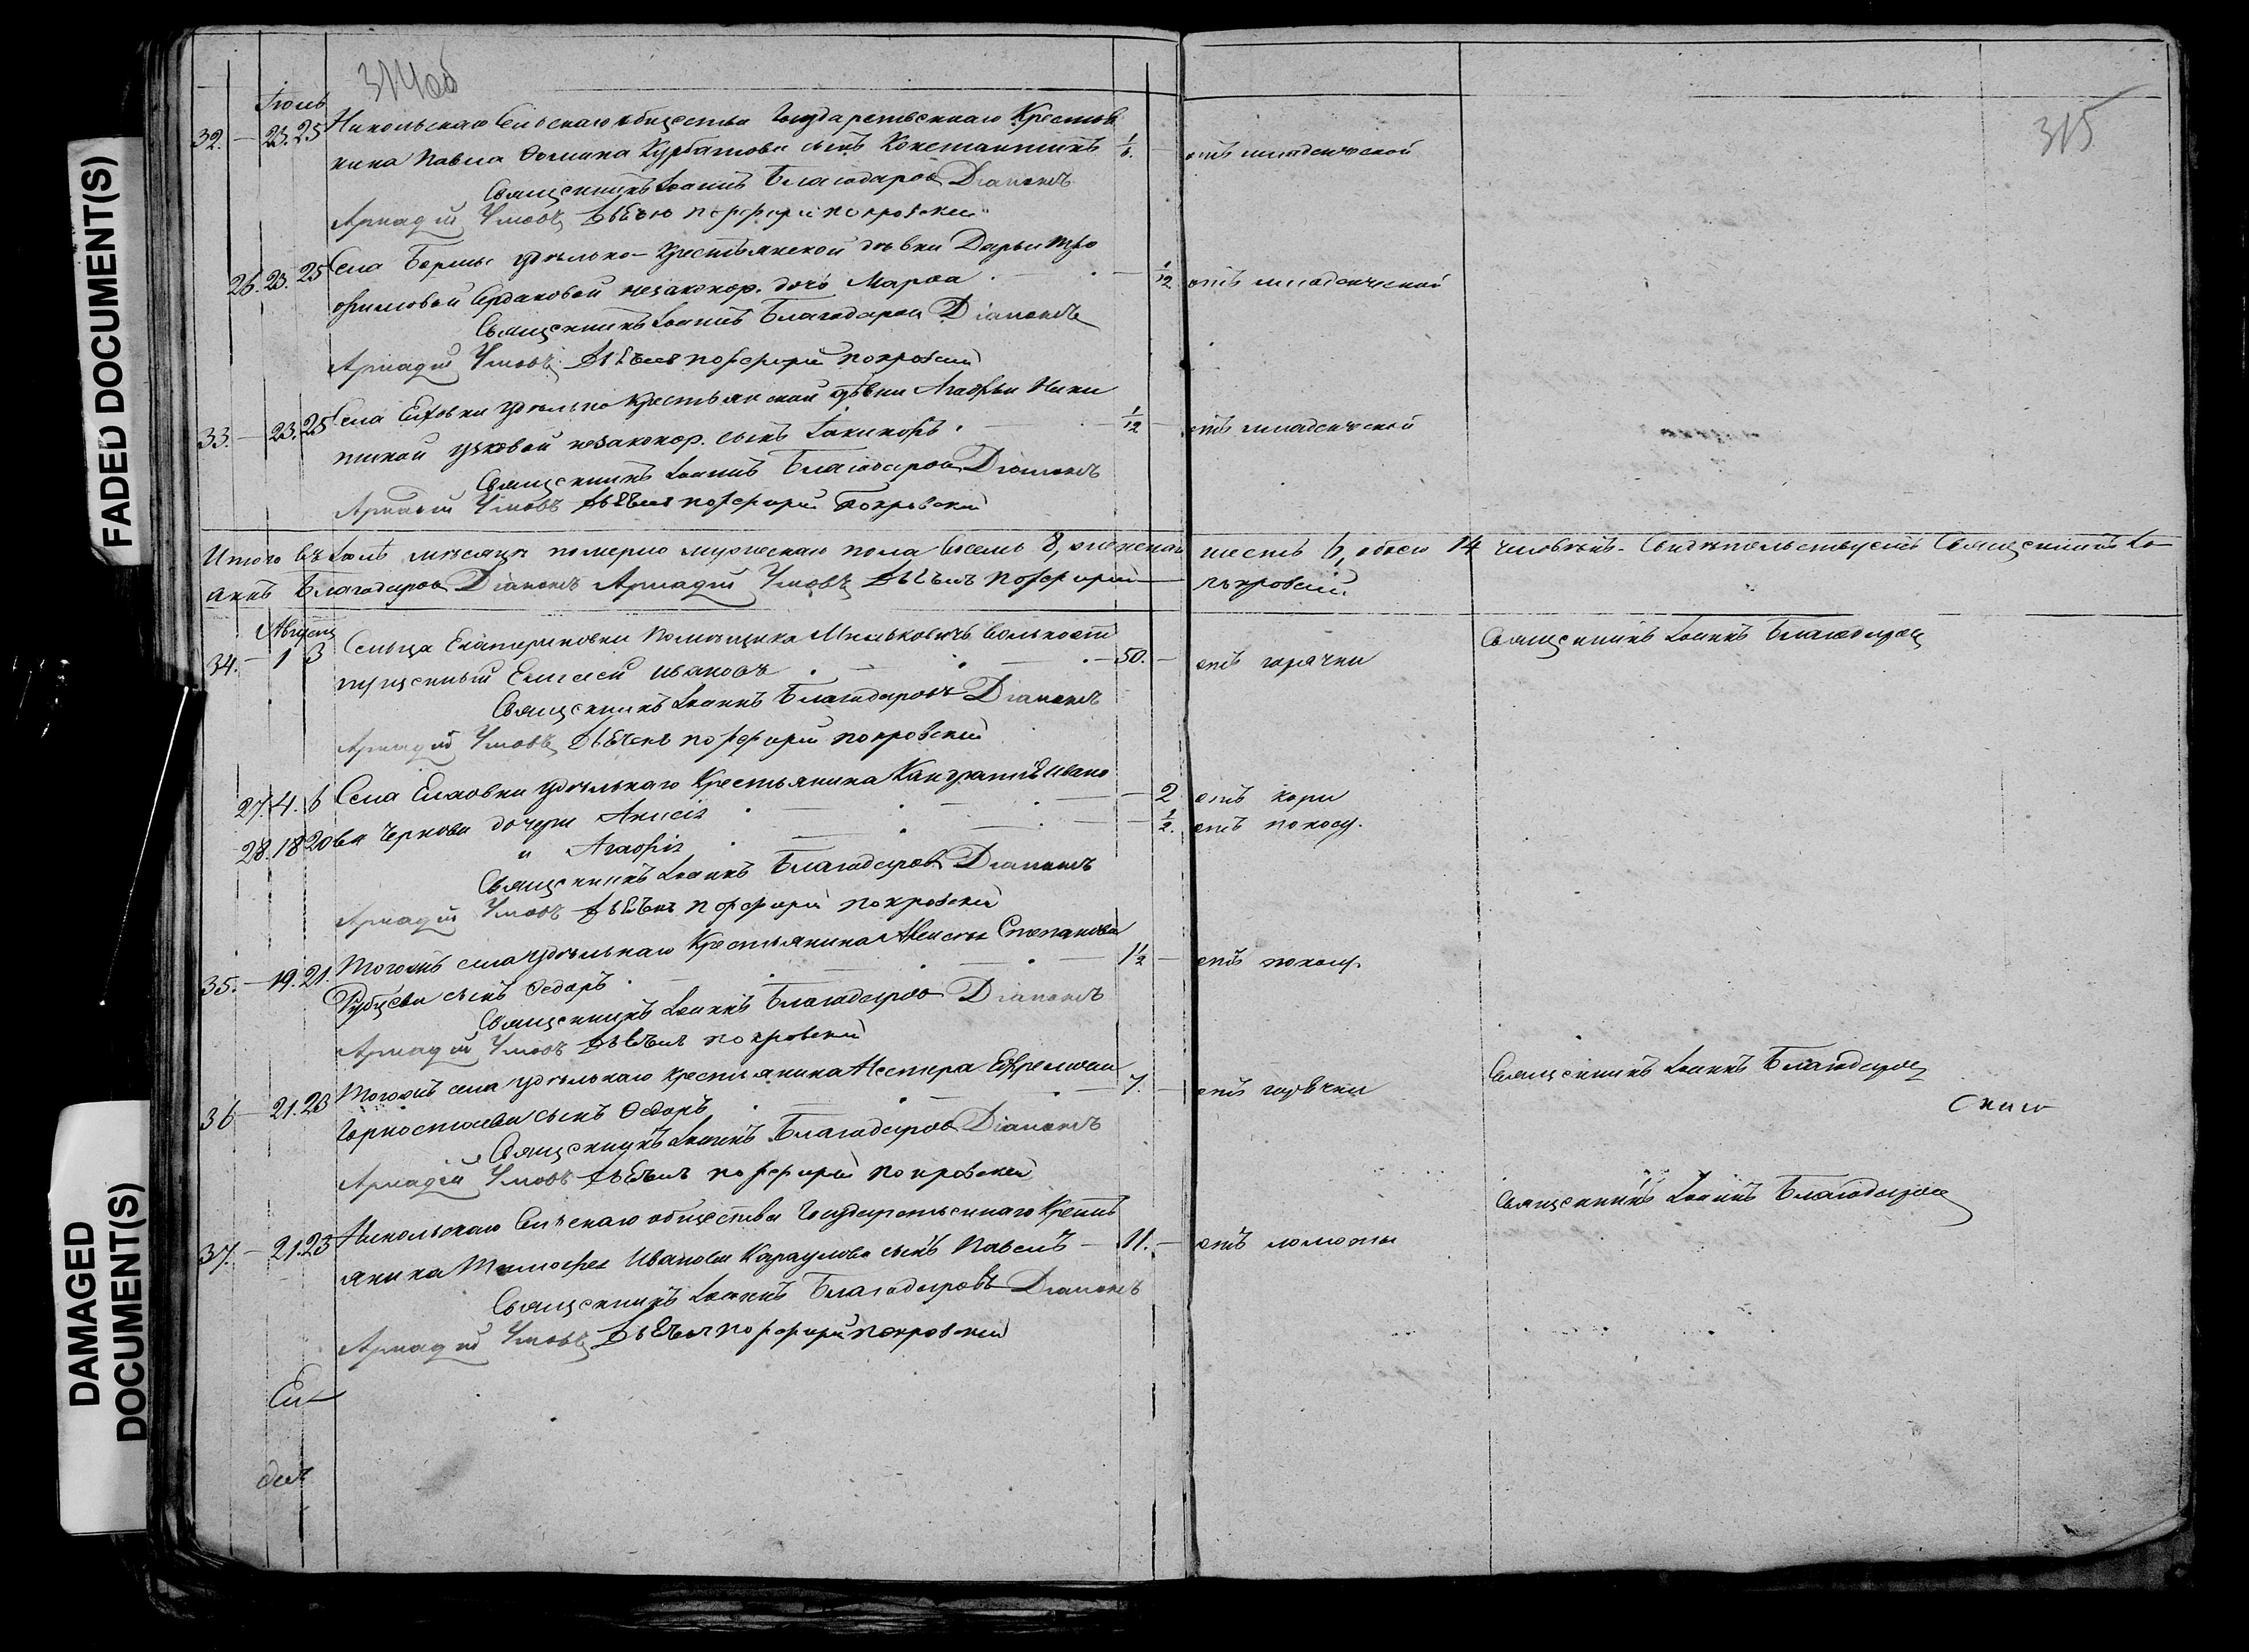 FADED DOCUMENT(S)
DAMAGED DOCUMENT(S)
314об
315
Іюль
32. – 23. 25 Никольскаго Сельскаго общества Государственнаго Крестья
нина Павла Ѳомина Курбатова сынъ Константинъ 1/6. – отъ младенческой
Священникъ Іоаннъ Благодаровъ Діаконъ
Аркадій Умовъ Дьячекъ Порфирій Покровскій
26. 23. 25 Села Борлы удѣльно-Крестьянской дѣвки Дарьи Тро
фимовой Сердаковой незаконор. дочь Марѳа – 1/12 отъ младенческой
Священникъ Іоаннъ Благодаровъ Діаконъ
Аркадій Умовъ Дьячекъ Порфирій Покровскій
33. – 23. 25 Села Елховки удѣльно Крестьянской дѣвки Агафьи Ники
тиной незаконор. сынъ 1/12 – отъ младенческой
Священникъ Іоаннъ Благодаровъ Діаконъ
Аркадій Умовъ Дьячекъ Порфирій Покровскій
Итого въ Іюлѣ мѣсяцѣ померло мужескаго пола восемь 8, женскаго шесть 6, обоего 14 человѣкъ. Свидѣтельствуемъ Священникъ Іо
аннъ Благодаровъ Діаконъ Аркадій Умовъ Дьячекъ Порфирій Покровскій
Августъ
34. – 1 3 Сельца Екатериновки Помѣщика Мильковичь вольноот
пущенный Елисей Ивановъ – 50. – отъ горячки
Священникъ Іоаннъ Благодаровъ
Священникъ Іоаннъ Благодаровъ Діаконъ
Аркадій Умовъ Дьячекъ Порфирій Покровскій
27. 4. 6 Села Елховки удѣльнаго Крестьянина Кандратія Ивано
ва Чернова дочери Анисія – 2 отъ кори
28. 18 20 и Агафія – 1/2. отъ поносу.
Священникъ Іоаннъ Благодаровъ Діаконъ
Аркадій Умовъ Дьячекъ Порфирій Покровскій
35. – 19. 21. Тогожъ села удѣльнаго Крестьянина Степанова
Рубцова сынъ Ѳедоръ – 1 1/2 – отъ поносу.
Священникъ Іоаннъ Благодаровъ Діаконъ
Аркадій Умовъ Дьячекъ Покровскій
36 – 21. 23 Тогожъ села удѣльнаго крестьянина Нестера Ефремова
Горностаева сынъ Ѳедоръ – 7. – отъ горячки
Священникъ Іоаннъ Благодаровъ
Священникъ Іоаннъ Благодаровъ Діаконъ
Аркадій Умовъ Дьячекъ Порфирій Покровскій
37. – 21. 23 Никольскаго Сельскаго общества Государственнаго Крестья
янина Тимофея Иванова Караулова сынъ Павелъ – 11. – отъ ломоты
Священникъ Іоаннъ Благодаровъ
Священникъ Іоаннъ Благодаровъ Діаконъ
Аркадій Умовъ Дьячекъ Порфирій Покровскій